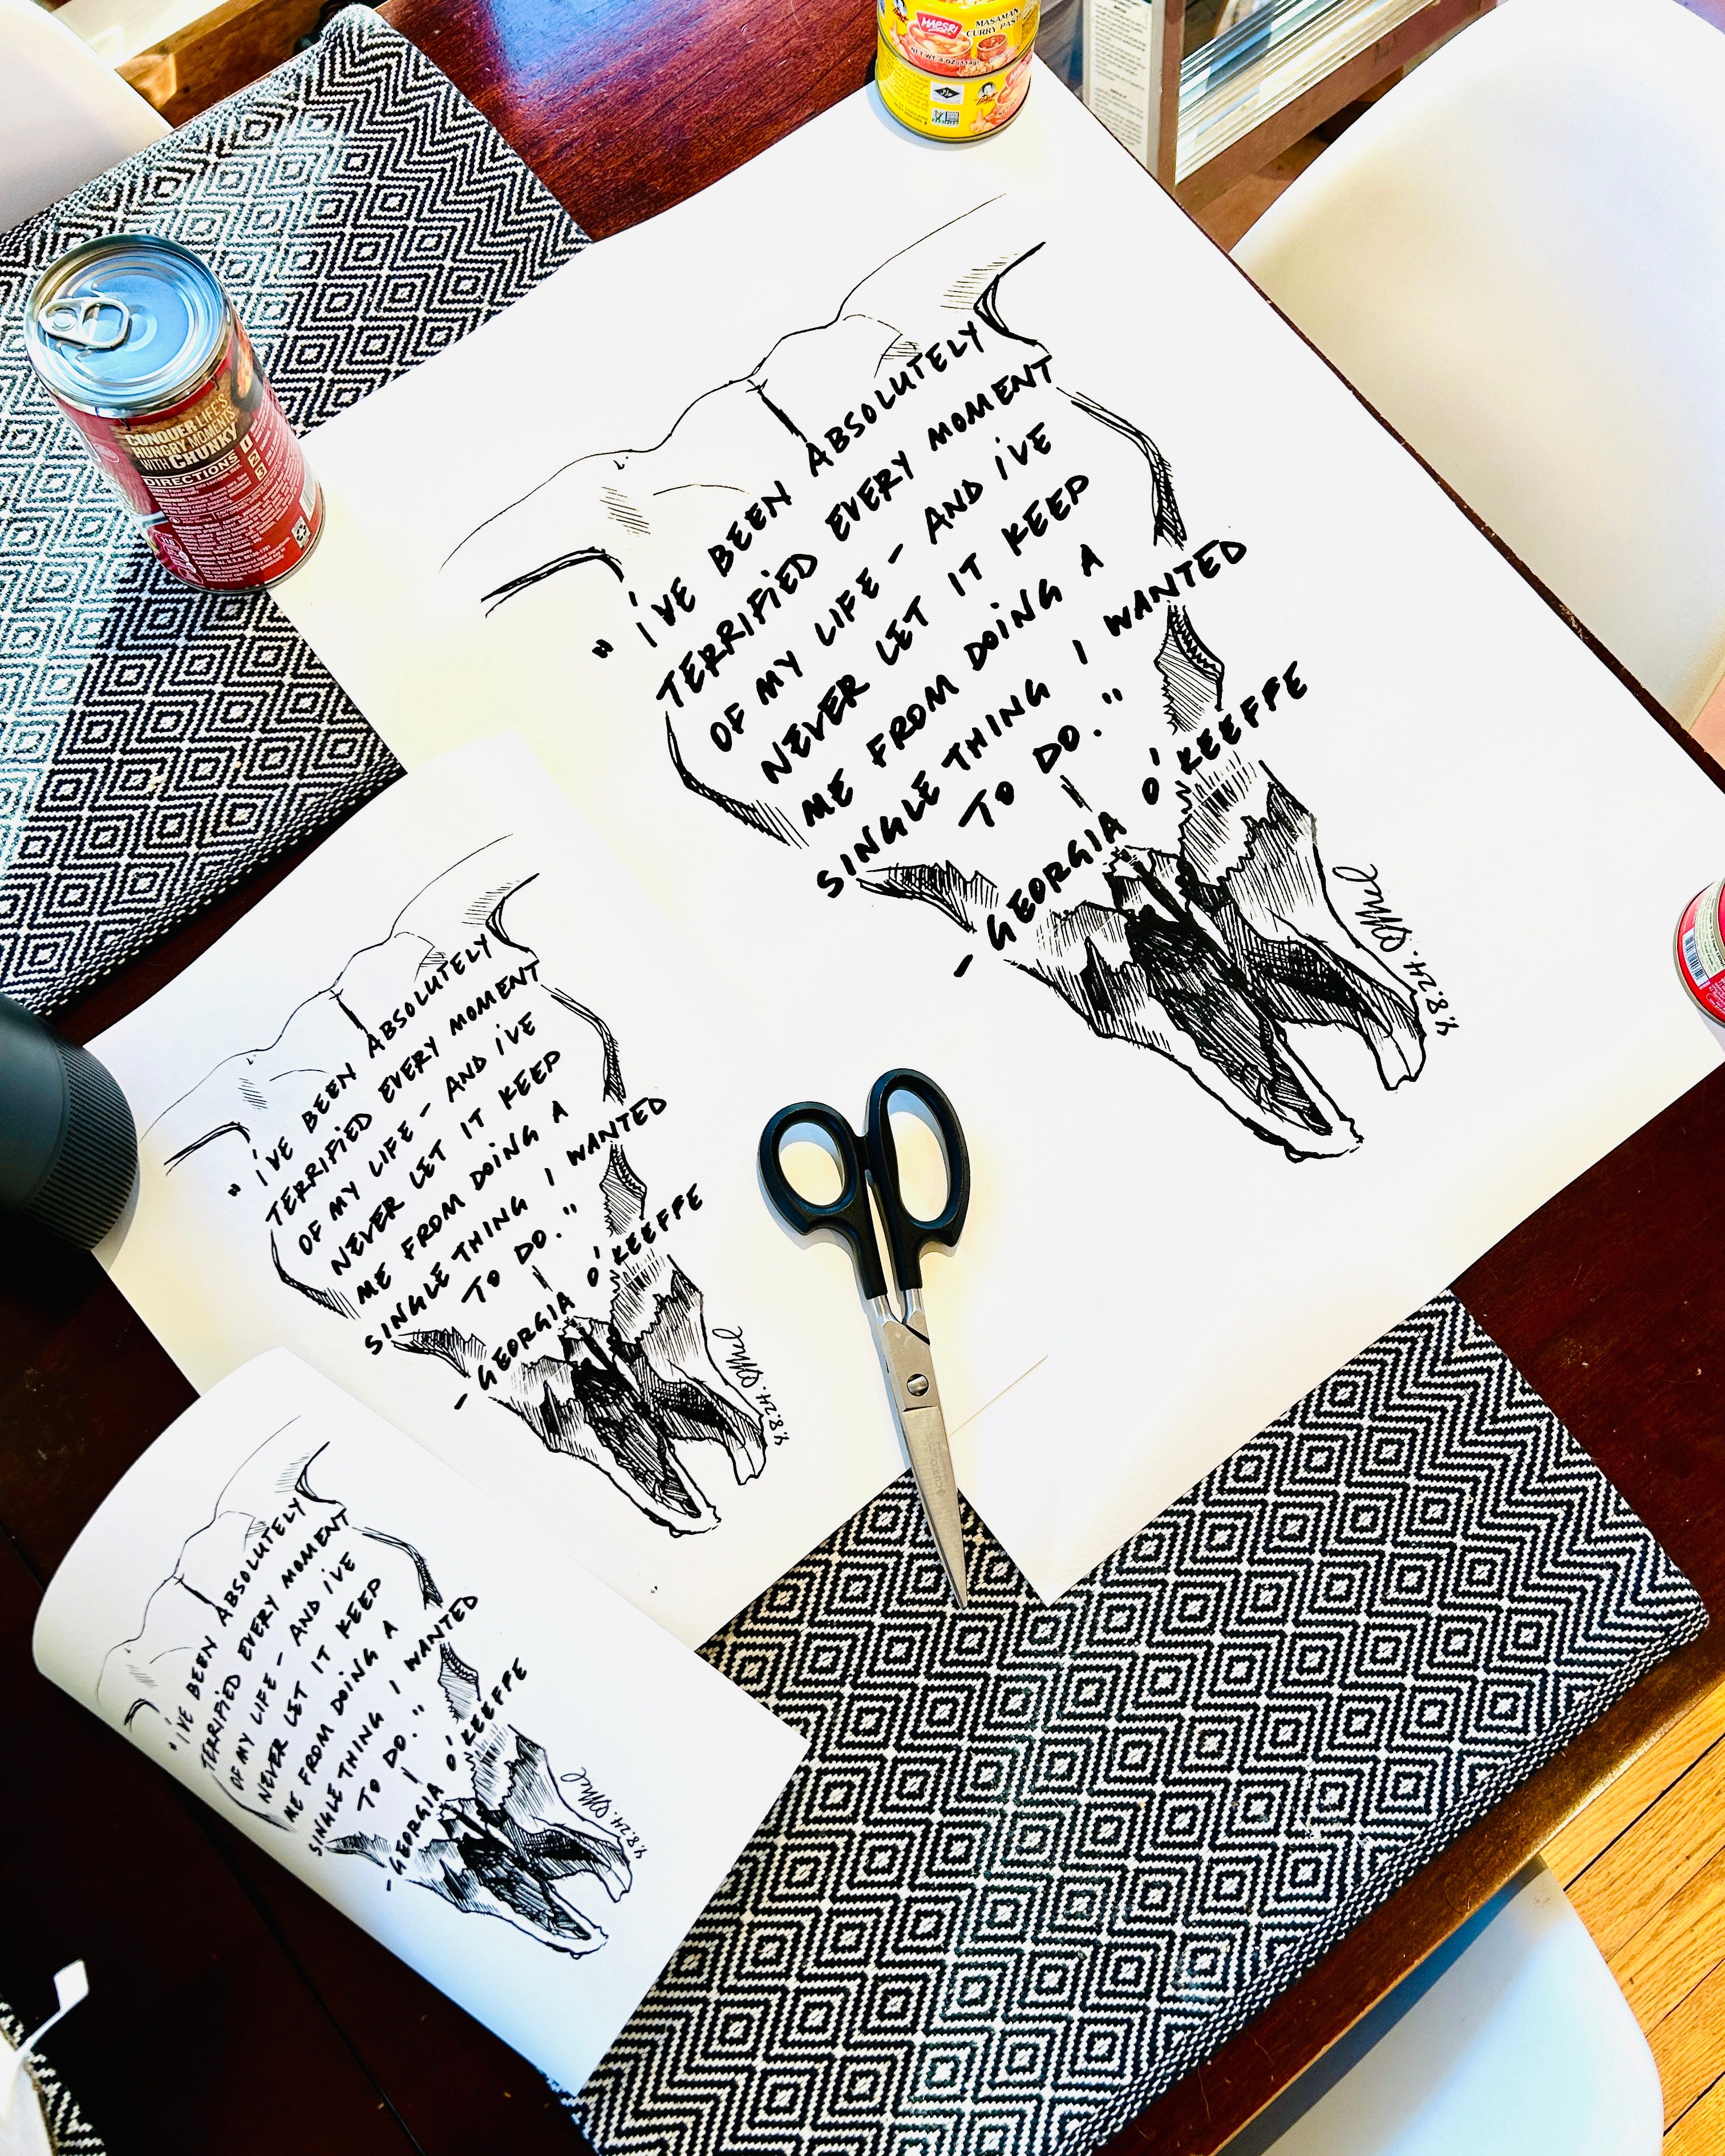 MAESRI
MASAMAN
CURRY PASTE
NET WT. 4 OZ (114g)
CONQUER LIFE'S
HUNGRY MOMENTS
WITH CHUNKY
DIRECTIONS
1
2
3
"I'VE BEEN ABSOLUTELY
TERRIFIED EVERY MOMENT
OF MY LIFE - AND I'VE
NEVER LET IT KEEP
ME FROM DOING A
SINGLE THING I WANTED
TO DO."
- GEORGIA O'KEEFFE
4.8.24.
"I'VE BEEN ABSOLUTELY
TERRIFIED EVERY MOMENT
OF MY LIFE - AND I'VE
NEVER LET IT KEEP
ME FROM DOING A
SINGLE THING I WANTED
TO DO."
- GEORGIA O'KEEFFE
4.8.24.
"I'VE BEEN ABSOLUTELY
TERRIFIED EVERY MOMENT
OF MY LIFE - AND I'VE
NEVER LET IT KEEP
ME FROM DOING A
SINGLE THING I WANTED
TO DO."
- GEORGIA O'KEEFFE
4.8.24.